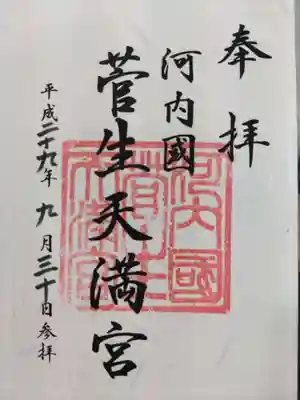 奉拝
河内國
菅生天満宮
平成二十九年九月三十日参拝
河内國
菅生
天満宮